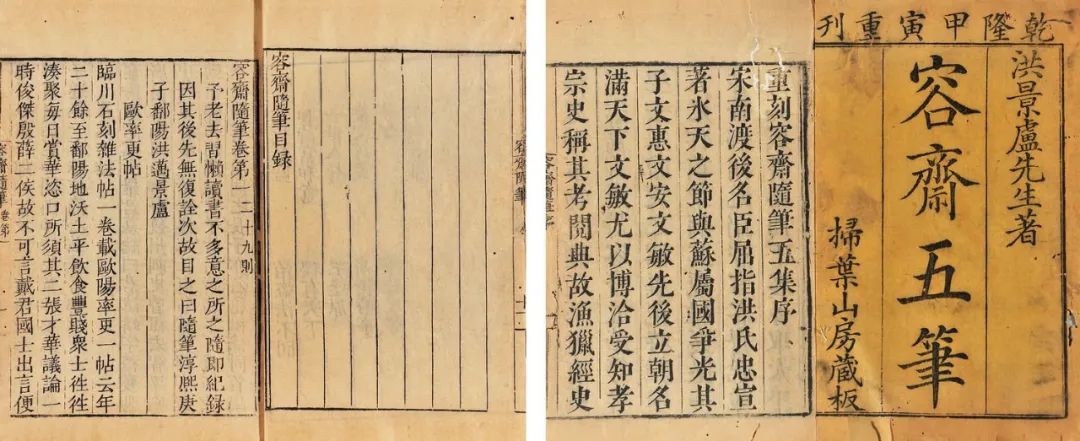 乾隆甲寅重刊
洪景盧先生著
容齋五筆
掃葉山房藏板
重刻容齋隨筆五集序
宋南渡後名臣屈指洪氏忠宣
著氷天之節與蘇屬國爭光其
子文惠文安文敏先後立朝名
滿天下文敏尤以博洽受知孝
宗史稱其考閱典故漁獵經史
容齋隨筆目錄
容齋隨筆
容齋隨筆卷第一二十九則
予老去習懶讀書不多意之所之隨即紀錄
因其後先無復詮次故目之曰隨筆淳熈庚
子鄱陽洪邁景盧
歐率更帖
臨川石刻雜法帖一卷載歐陽率更一帖云年
二十餘至鄱陽地沃土平飲食豐賤衆士徃徃
湊聚每日賞華恣口所須其二張才華議論一
時俊傑殷薛二侯故不可言戴君國士出言便
容齋隨筆 卷第一